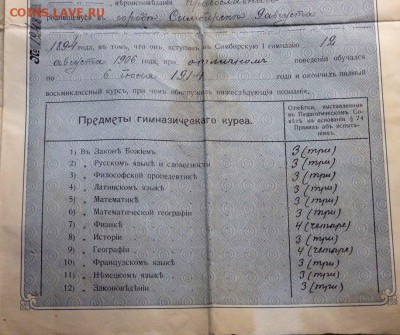 COINS.LAVE.RU
вѣроисповѣданія православнаго
родившемуся въ городѣ Симбирскѣ 9 августа
1894 года, въ томъ, что онъ, вступивъ въ Симбирскую I гимназію 12
августа 1906 года, при отличномъ поведеніи обучался
по 6 іюня 1914 года и окончилъ полный
восьмиклассный курсъ, при чемъ обнаружилъ нижеслѣдующія познанія:
Предметы гимназическаго курса.
Отмѣтки, выставленныя
въ Педагогическомъ Со-
вѣтѣ на основаніи § 74
Правилъ объ испыта-
ніяхъ.
1) Въ Законѣ Божіемъ 3 (три)
2) „ Русскомъ языкѣ и словесности 3 (три)
3) „ Философской пропедевтикѣ 3 (три)
4) „ Латинскомъ языкѣ 3 (три)
5) „ Математикѣ 3 (три)
6) „ Математической географіи 3 (три)
7) „ Физикѣ 4 (четыре)
8) „ Исторіи 3 (три)
9) „ Географіи 4 (четыре)
10) „ Французскомъ языкѣ 3 (три)
11) „ Нѣмецкомъ языкѣ 3 (три)
12) „ Законовѣдѣніи 3 (три)